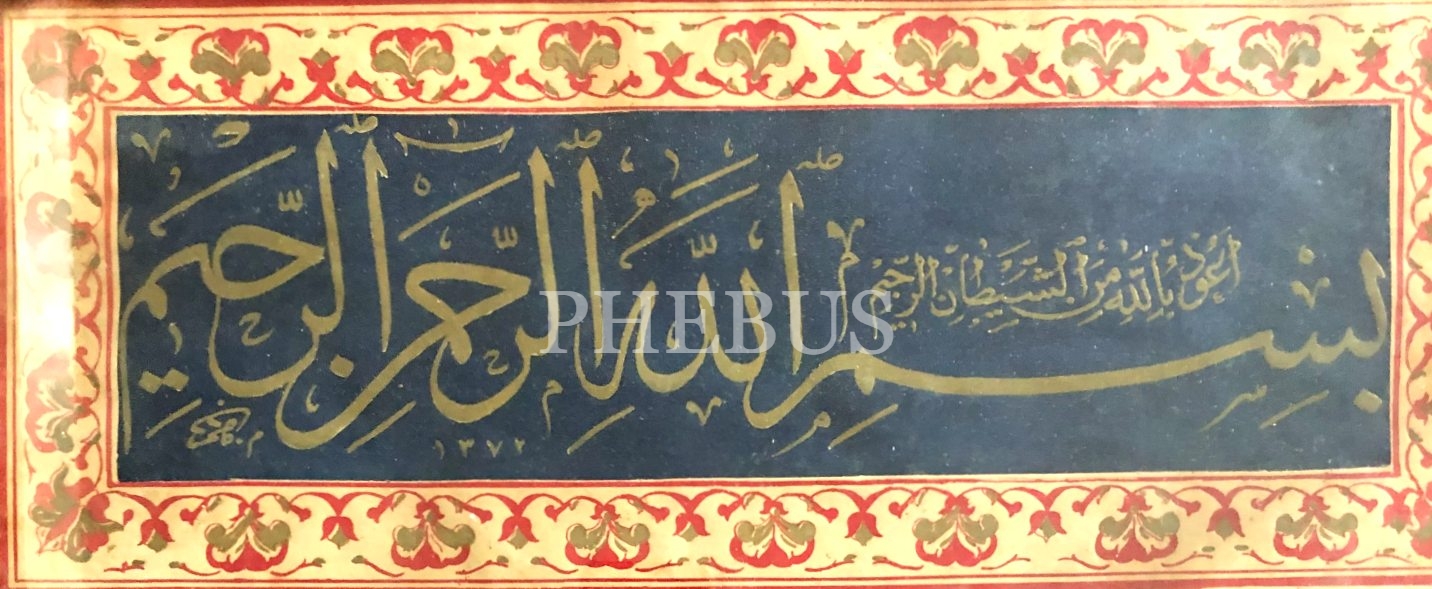 اعوذ بالله من الشيطان الرجيم
بسم الله الرحمن الرحيم
١٣٧٢
PHEBUS